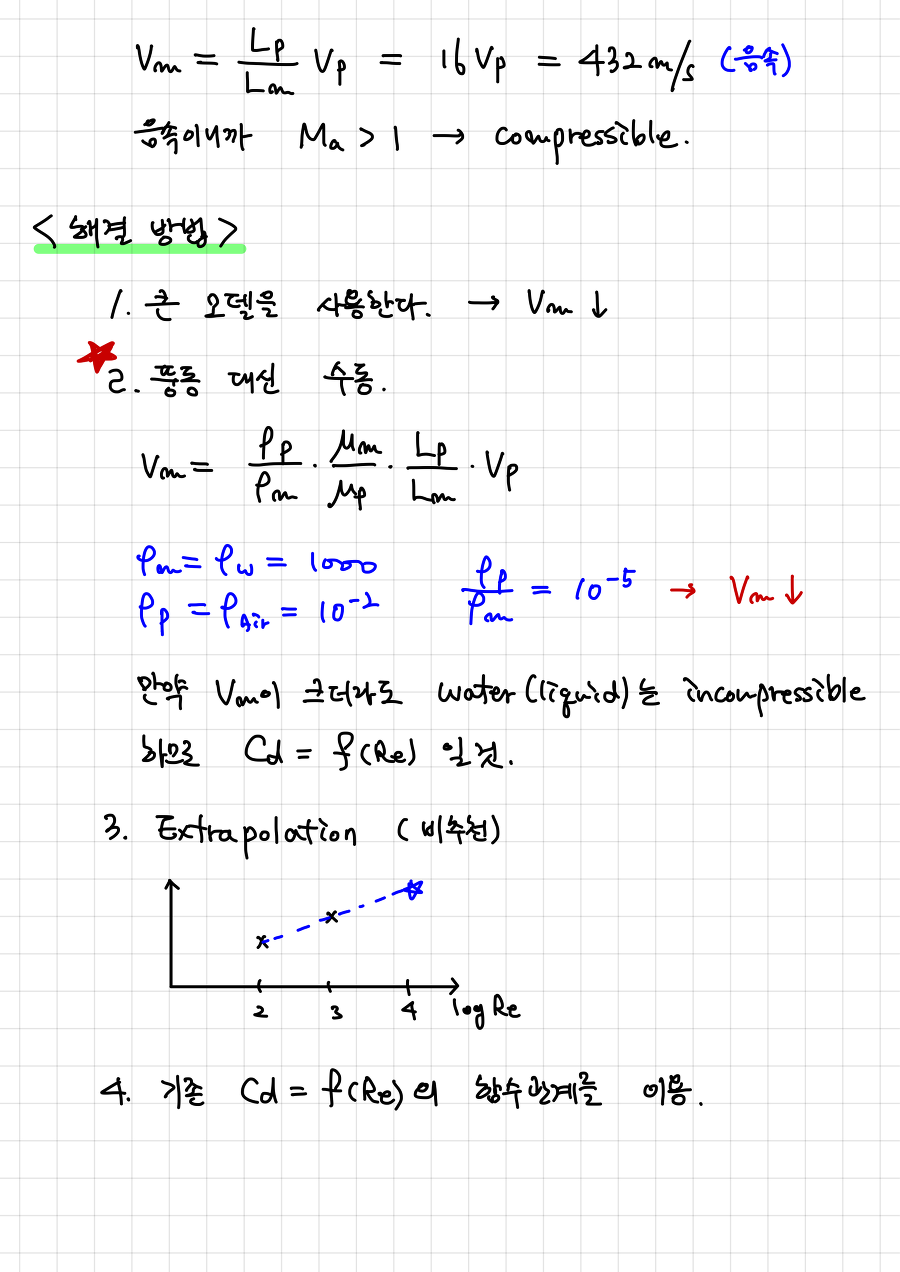 Vm = Lp/Lm Vp = 16 Vp = 432 m/s (음속)
음속이니까 Ma > 1 → compressible.
< 해결 방법 >
1. 큰 모델을 사용한다. → Vm ↓
★ 2. 풍동 대신 수동.
Vm = ρp/ρm · μm/μp · Lp/Lm · Vp
ρm = ρw = 1000
ρp = ρAir = 10⁻²
ρp/ρm = 10⁻⁵ → Vm ↓
만약 Vm이 크더라도 water (liquid)는 incompressible
하므로 Cd = f(Re) 일 것.
3. Extrapolation (비추천)
2 3 4 log Re
4. 기존 Cd = f(Re) 의 함수관계를 이용.